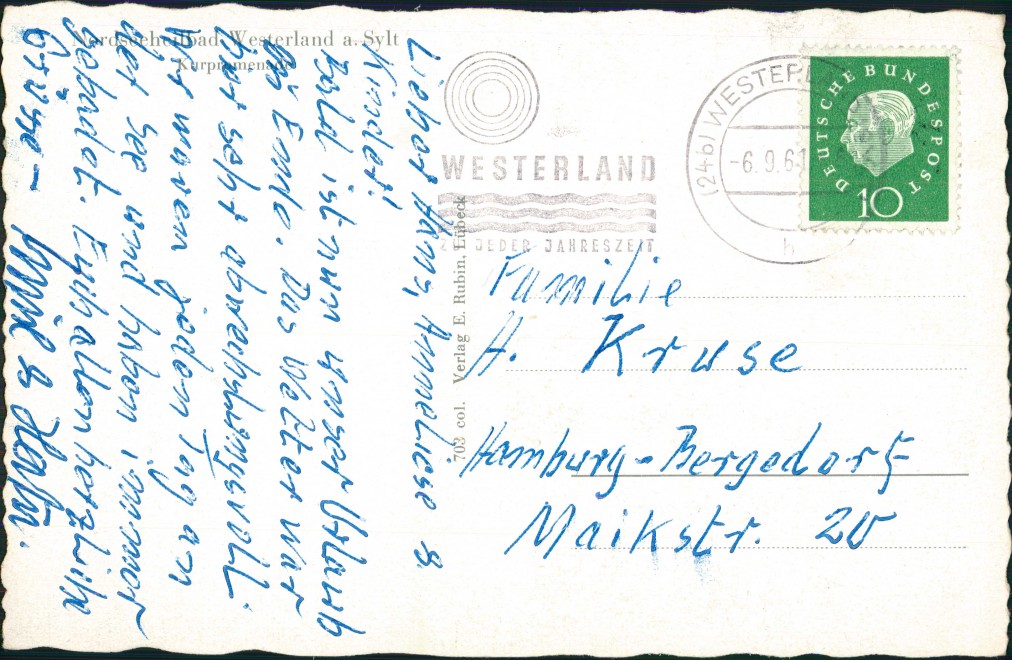 Nordseeheilbad Westerland a. Sylt
Kurpromenade
Lieber Hans, Anneliese &
Kinder!
Bald ist nun unser Urlaub
zu Ende. Das Wetter war
hier sehr abwechslungsvoll.
Wir waren jeden Tag an
der See und haben immer
gebadet. Euch allen herzliche
Grüsse –
702 col. Verlag E. Rubin, Lübeck
WESTERLAND
ZU JEDER JAHRESZEIT
(24b) WESTERL
-6.9.61
h
DEUTSCHE BUNDESPOST
10
Familie
H. Kruse
Hamburg-Bergedorf
Maikstr. 20